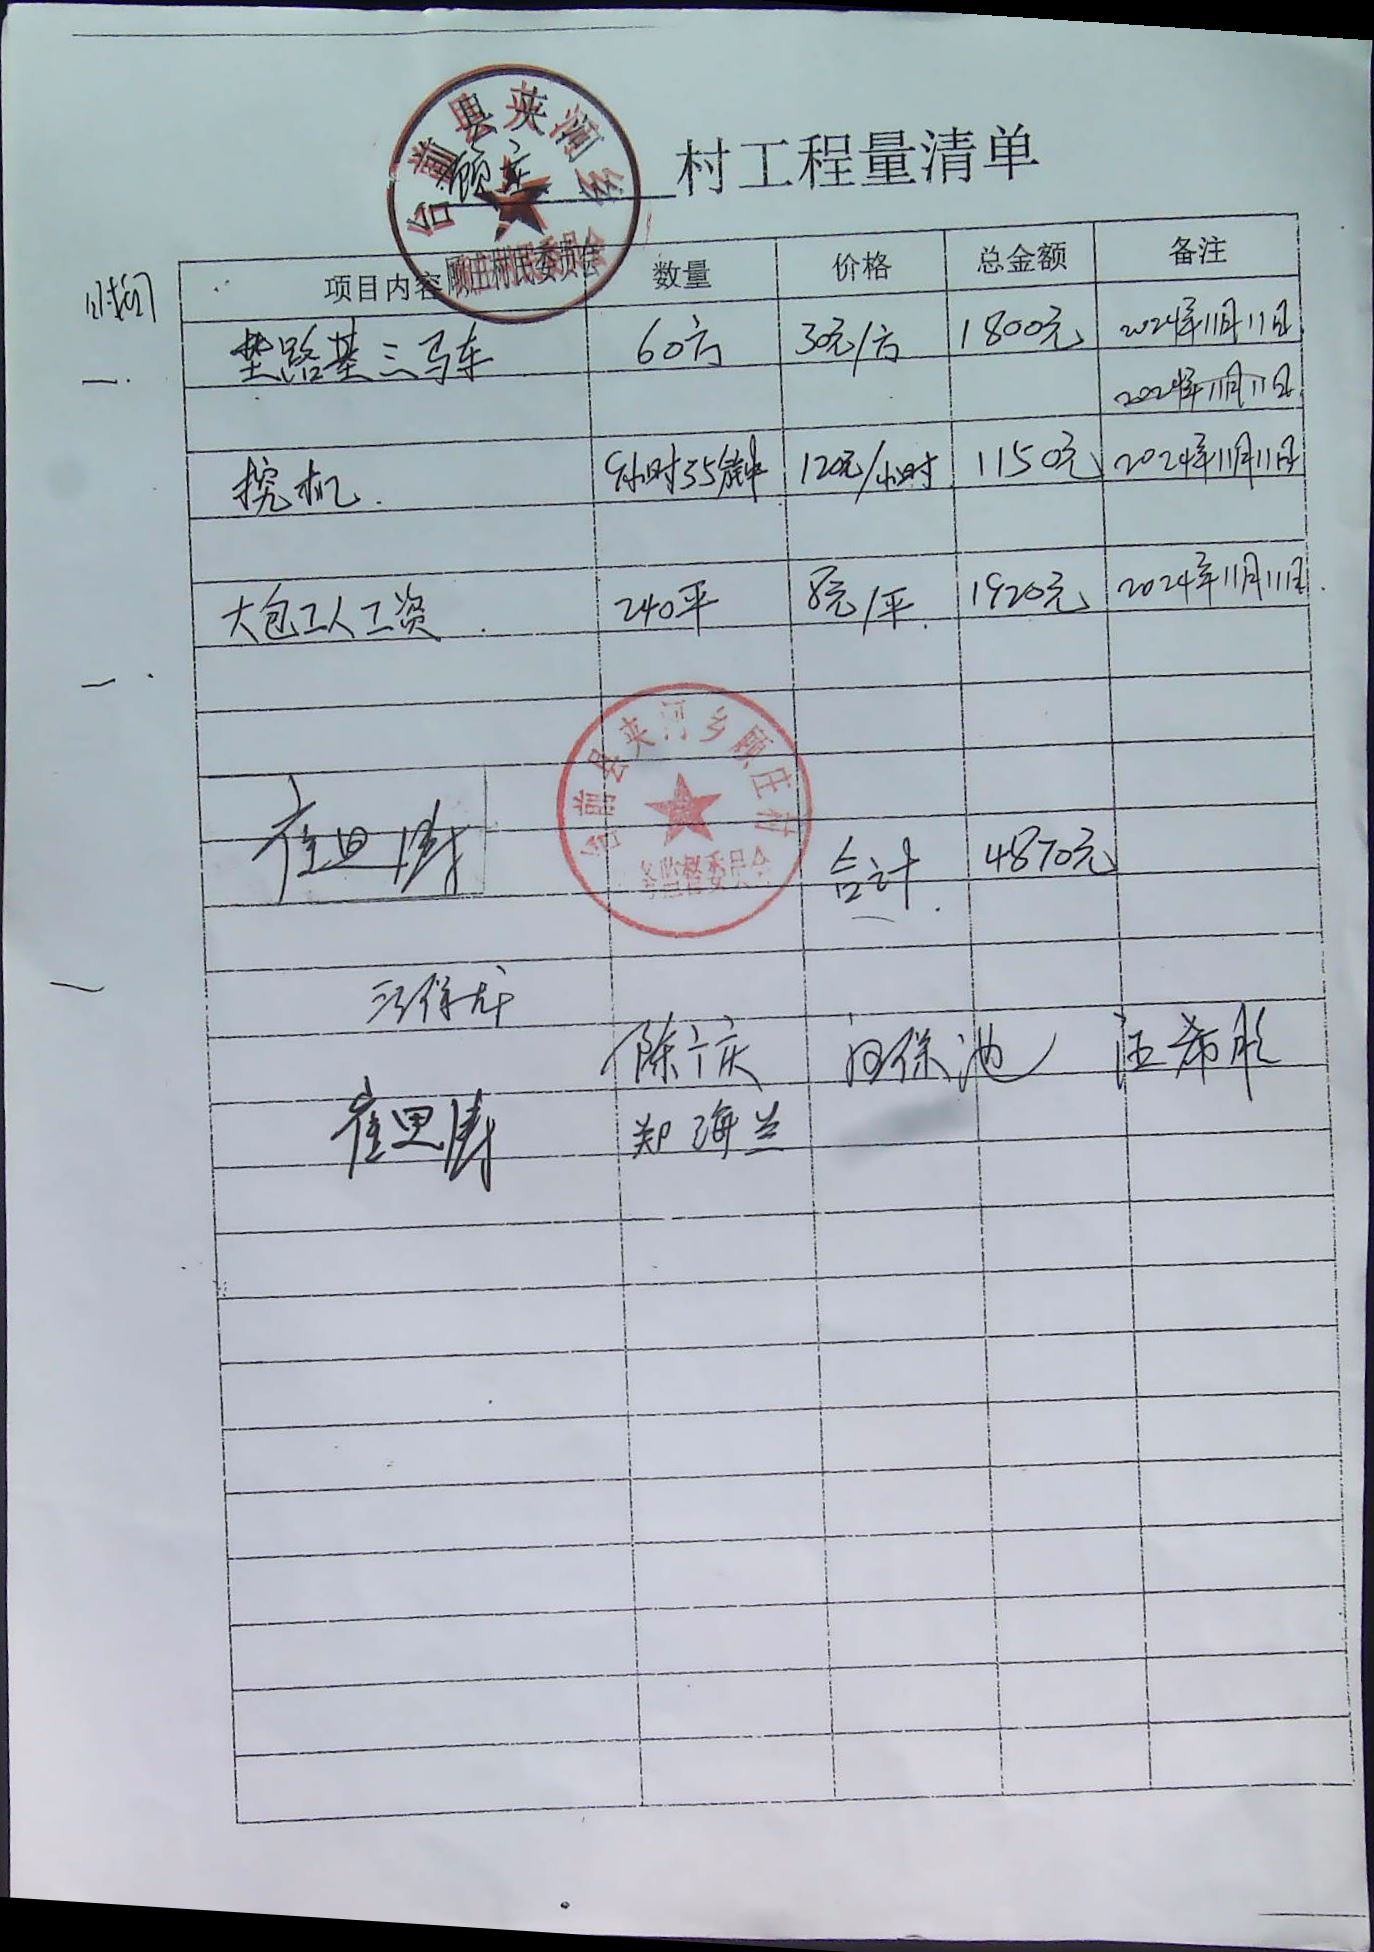 台前县夹河乡
顾庄村民委员会
顾庄村工程量清单
时间
项目内容 数量 价格 总金额 备注
垫路基三马车 60方 30元/方 1800元 2024年11月11日
2024年11月11日
挖机. 9小时35分钟 120元/小时 1150元 2024年11月11日
大包工人工资 240平 8元/平. 1920元 2024年11月11日.
台前县夹河乡顾庄村
务监督委员会
崔思涛 合计. 4870元
陈广庆 保池 汪希彤
崔思涛 郑海兰